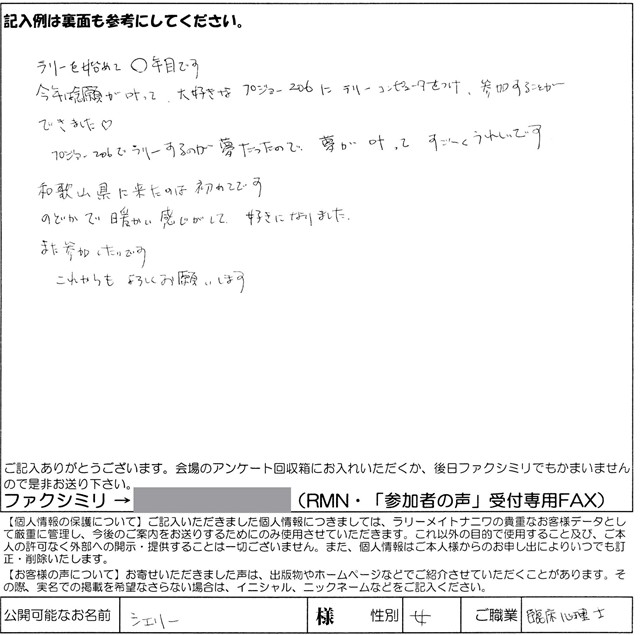 記入例は裏面も参考にしてください。
ラリーを始めて ○年目です
今年は念願が叶って、大好きな プジョー206に ラリーコンピュータをつけ、参加することが
できました♡
プジョー206でラリーするのが夢だったので、夢が叶って すごーくうれしいです
和歌山県に来たのは初めてです
のどかで暖かい感じがして、好きになりました。
また参加したいです
これからも よろしくお願いします
ご記入ありがとうございます。会場のアンケート回収箱にお入れいただくか、後日ファクシミリでもかまいません
ので是非お送り下さい。
ファクシミリ → （RMN・「参加者の声」受付専用FAX）
【個人情報の保護について】ご記入いただきました個人情報につきましては、ラリーメイトナニワの貴重なお客様データとし
て厳重に管理し、今後のご案内をお送りするためにのみ使用させていただきます。これ以外の目的で使用すること及び、ご本
人の許可なく外部への開示・提供することは一切ございません。また、個人情報はご本人様からのお申し出によりいつでも訂
正・削除いたします。
【お客様の声について】お寄せいただきました声は、出版物やホームページなどでご紹介させていただくことがあります。そ
の際、実名での掲載を希望なさらない場合は、イニシャル、ニックネームなどをご記入ください。
公開可能なお名前 シェリー 様 性別 女 ご職業 臨床心理士